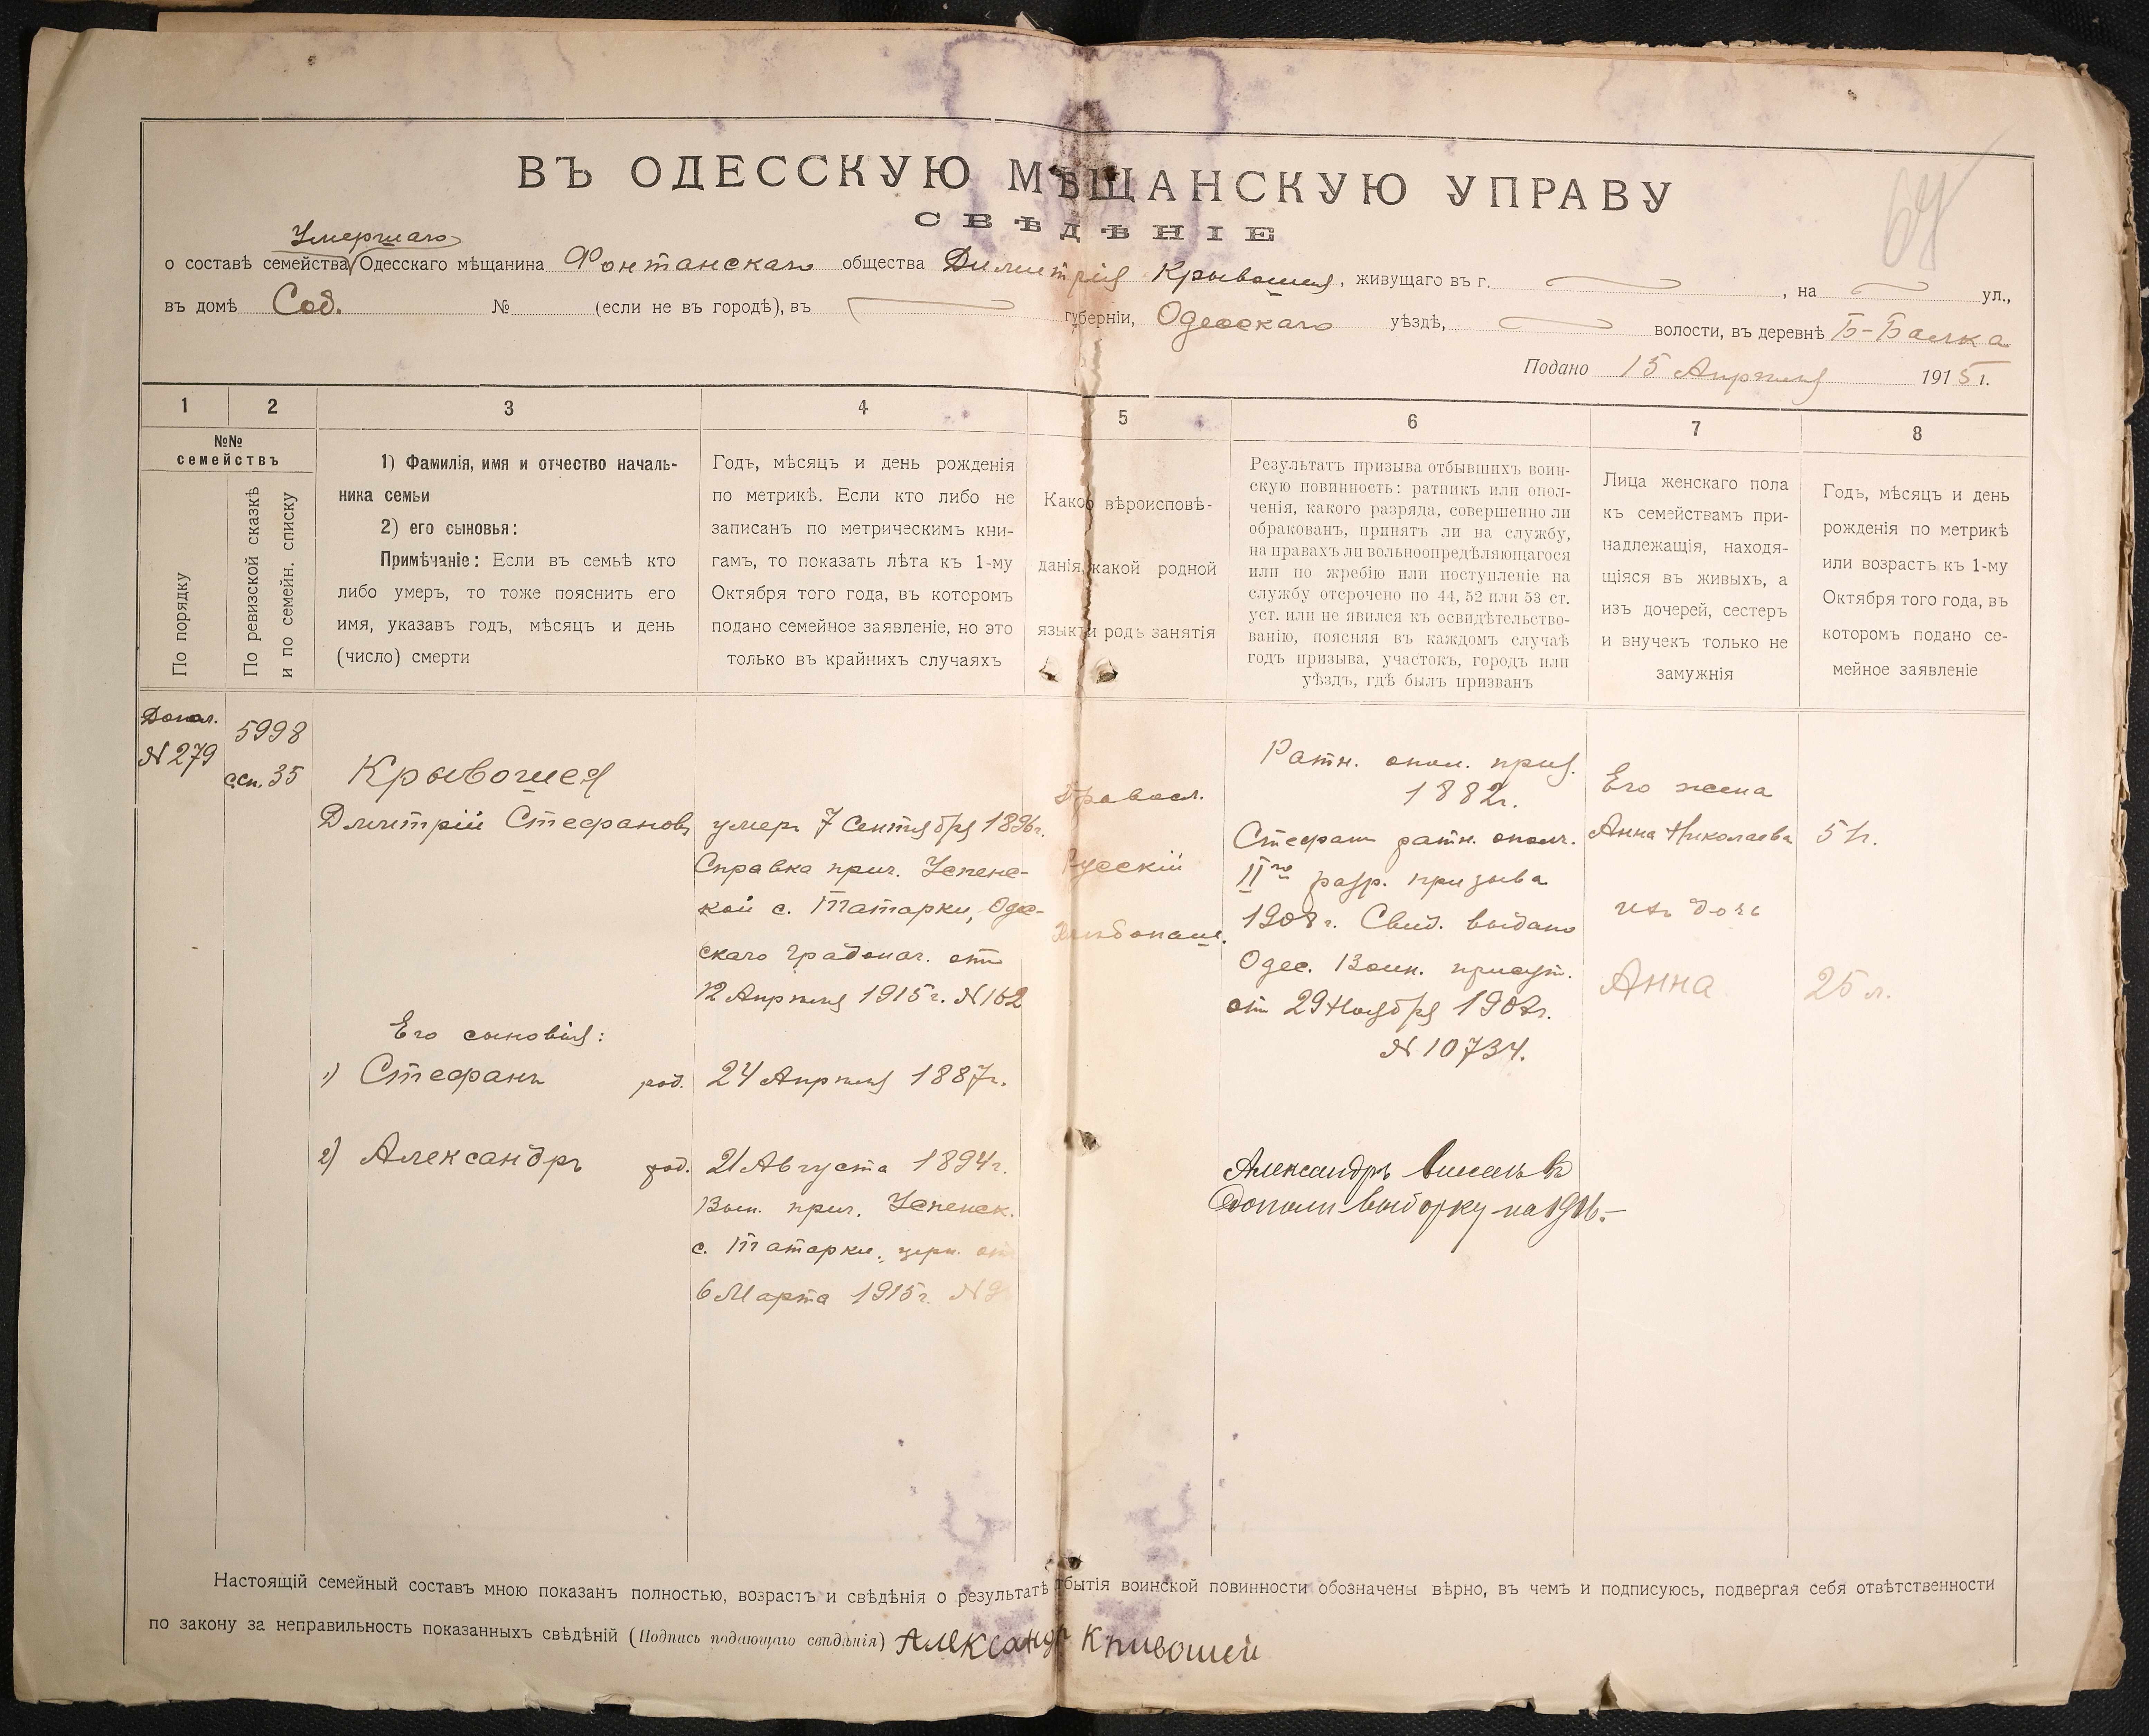 ВЪ ОДЕССКУЮ МѢЩАНСКУЮ УПРАВУ
64
СВѢДѢНІЕ
Умершаго
о составѣ семейства Одесскаго мѣщанина Фонтанскаго общества Димитрія Крывошея, живущаго въ г. , на ул.,
въ домѣ Соб. № (если не въ городѣ), въ губерніи, Одесскаго уѣздѣ, волости, въ деревнѣ Б-Балка
Подано 15 Апрѣля 1915 г.
1 2 3 4 5 6 7 8
№№
семействъ
По порядку
По ревизской сказкѣ
и по семейн. списку
1) Фамилія, имя и отчество началь-
ника семьи
2) его сыновья:
Примѣчаніе: Если въ семьѣ кто
либо умеръ, то тоже пояснить его
имя, указавъ годъ, мѣсяцъ и день
(число) смерти
Годъ, мѣсяцъ и день рожденія
по метрикѣ. Если кто либо не
записанъ по метрическимъ кни-
гамъ, то показать лѣта къ 1-му
Октября того года, въ которомъ
подано семейное заявленіе, но это
только въ крайнихъ случаяхъ
Какое вѣроисповѣ-
данія, какой родной
языкъ и родъ занятія
Результатъ призыва отбывшихъ воин-
скую повинность: ратникъ или опол-
ченія, какого разряда, совершенно ли
обракованъ, принятъ ли на службу,
на правахъ ли вольноопредѣляющагося
или по жребію или поступленіе на
службу отсрочено по 44, 52 или 53 ст.
уст. или не явился къ освидѣтельство-
ванію, поясняя въ каждомъ случаѣ
годъ призыва, участокъ, городъ или
уѣздъ, гдѣ былъ призванъ
Лица женскаго пола
къ семействамъ при-
надлежащія, находя-
щіяся въ живыхъ, а
изъ дочерей, сестеръ
и внучекъ только не
замужнія
Годъ, мѣсяцъ и день
рожденія по метрикѣ
или возрастъ къ 1-му
Октября того года, въ
которомъ подано се-
мейное заявленіе
Допол.
№ 279
5998
с.сп. 35
Крывошея
Дмитрій Стефановъ
Его сыновья:
1) Стефанъ род.
2) Александръ род.
умеръ 7 Сентября 1896г.
Справка прич. Успенс-
кой с. Татарки, Одес-
скаго градонач. отъ
12 Апрѣля 1915 г. № 162
24 Апрѣля 1887г.
21 Августа 1894г.
прич. Успенск.
с. Татарки, церк. отъ
6 Марта 1915 г.
Правосл.
Русскій
Хлѣбопаш.
Ратн. опол. приз.
1882г.
Стефанъ ратн. ополч.
IIго разр. призыва
1908 г. Свид. выдано
Одес. Воин. присут.
отъ 29 Ноября 1908г.
№ 10734.
Александръ внесенъ въ
выборку на
Его жена
Анна Николаева
ихъ дочь
Анна
51г.
25 л.
Настоящій семейный составъ мною показанъ полностью, возрастъ и свѣдѣнія о результатѣ отбытія воинской повинности обозначены вѣрно, въ чемъ и подписуюсь, подвергая себя отвѣтственности
по закону за неправильность показанныхъ свѣдѣній (Подпись подающаго свѣдѣнія) Александр Кривошей